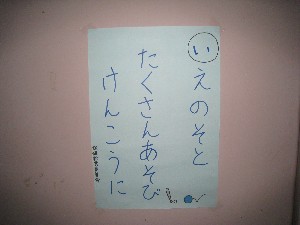 いえのそと
たくさんあそび
けんこうに